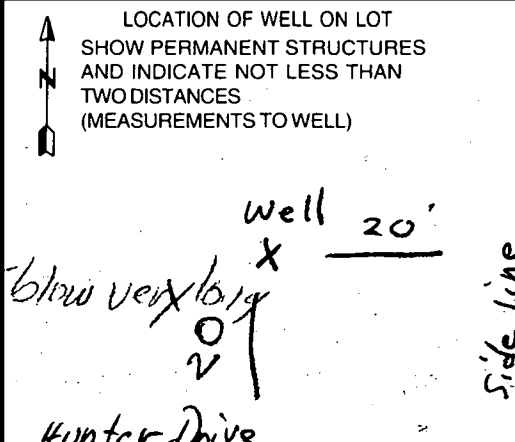 LOCATION OF WELL ON LOT
SHOW PERMANENT STRUCTURES
AND INDICATE NOT LESS THAN
TWO DISTANCES
(MEASUREMENTS TO WELL)
N
Well
20'
X
20
Side Line
Hunter Drive